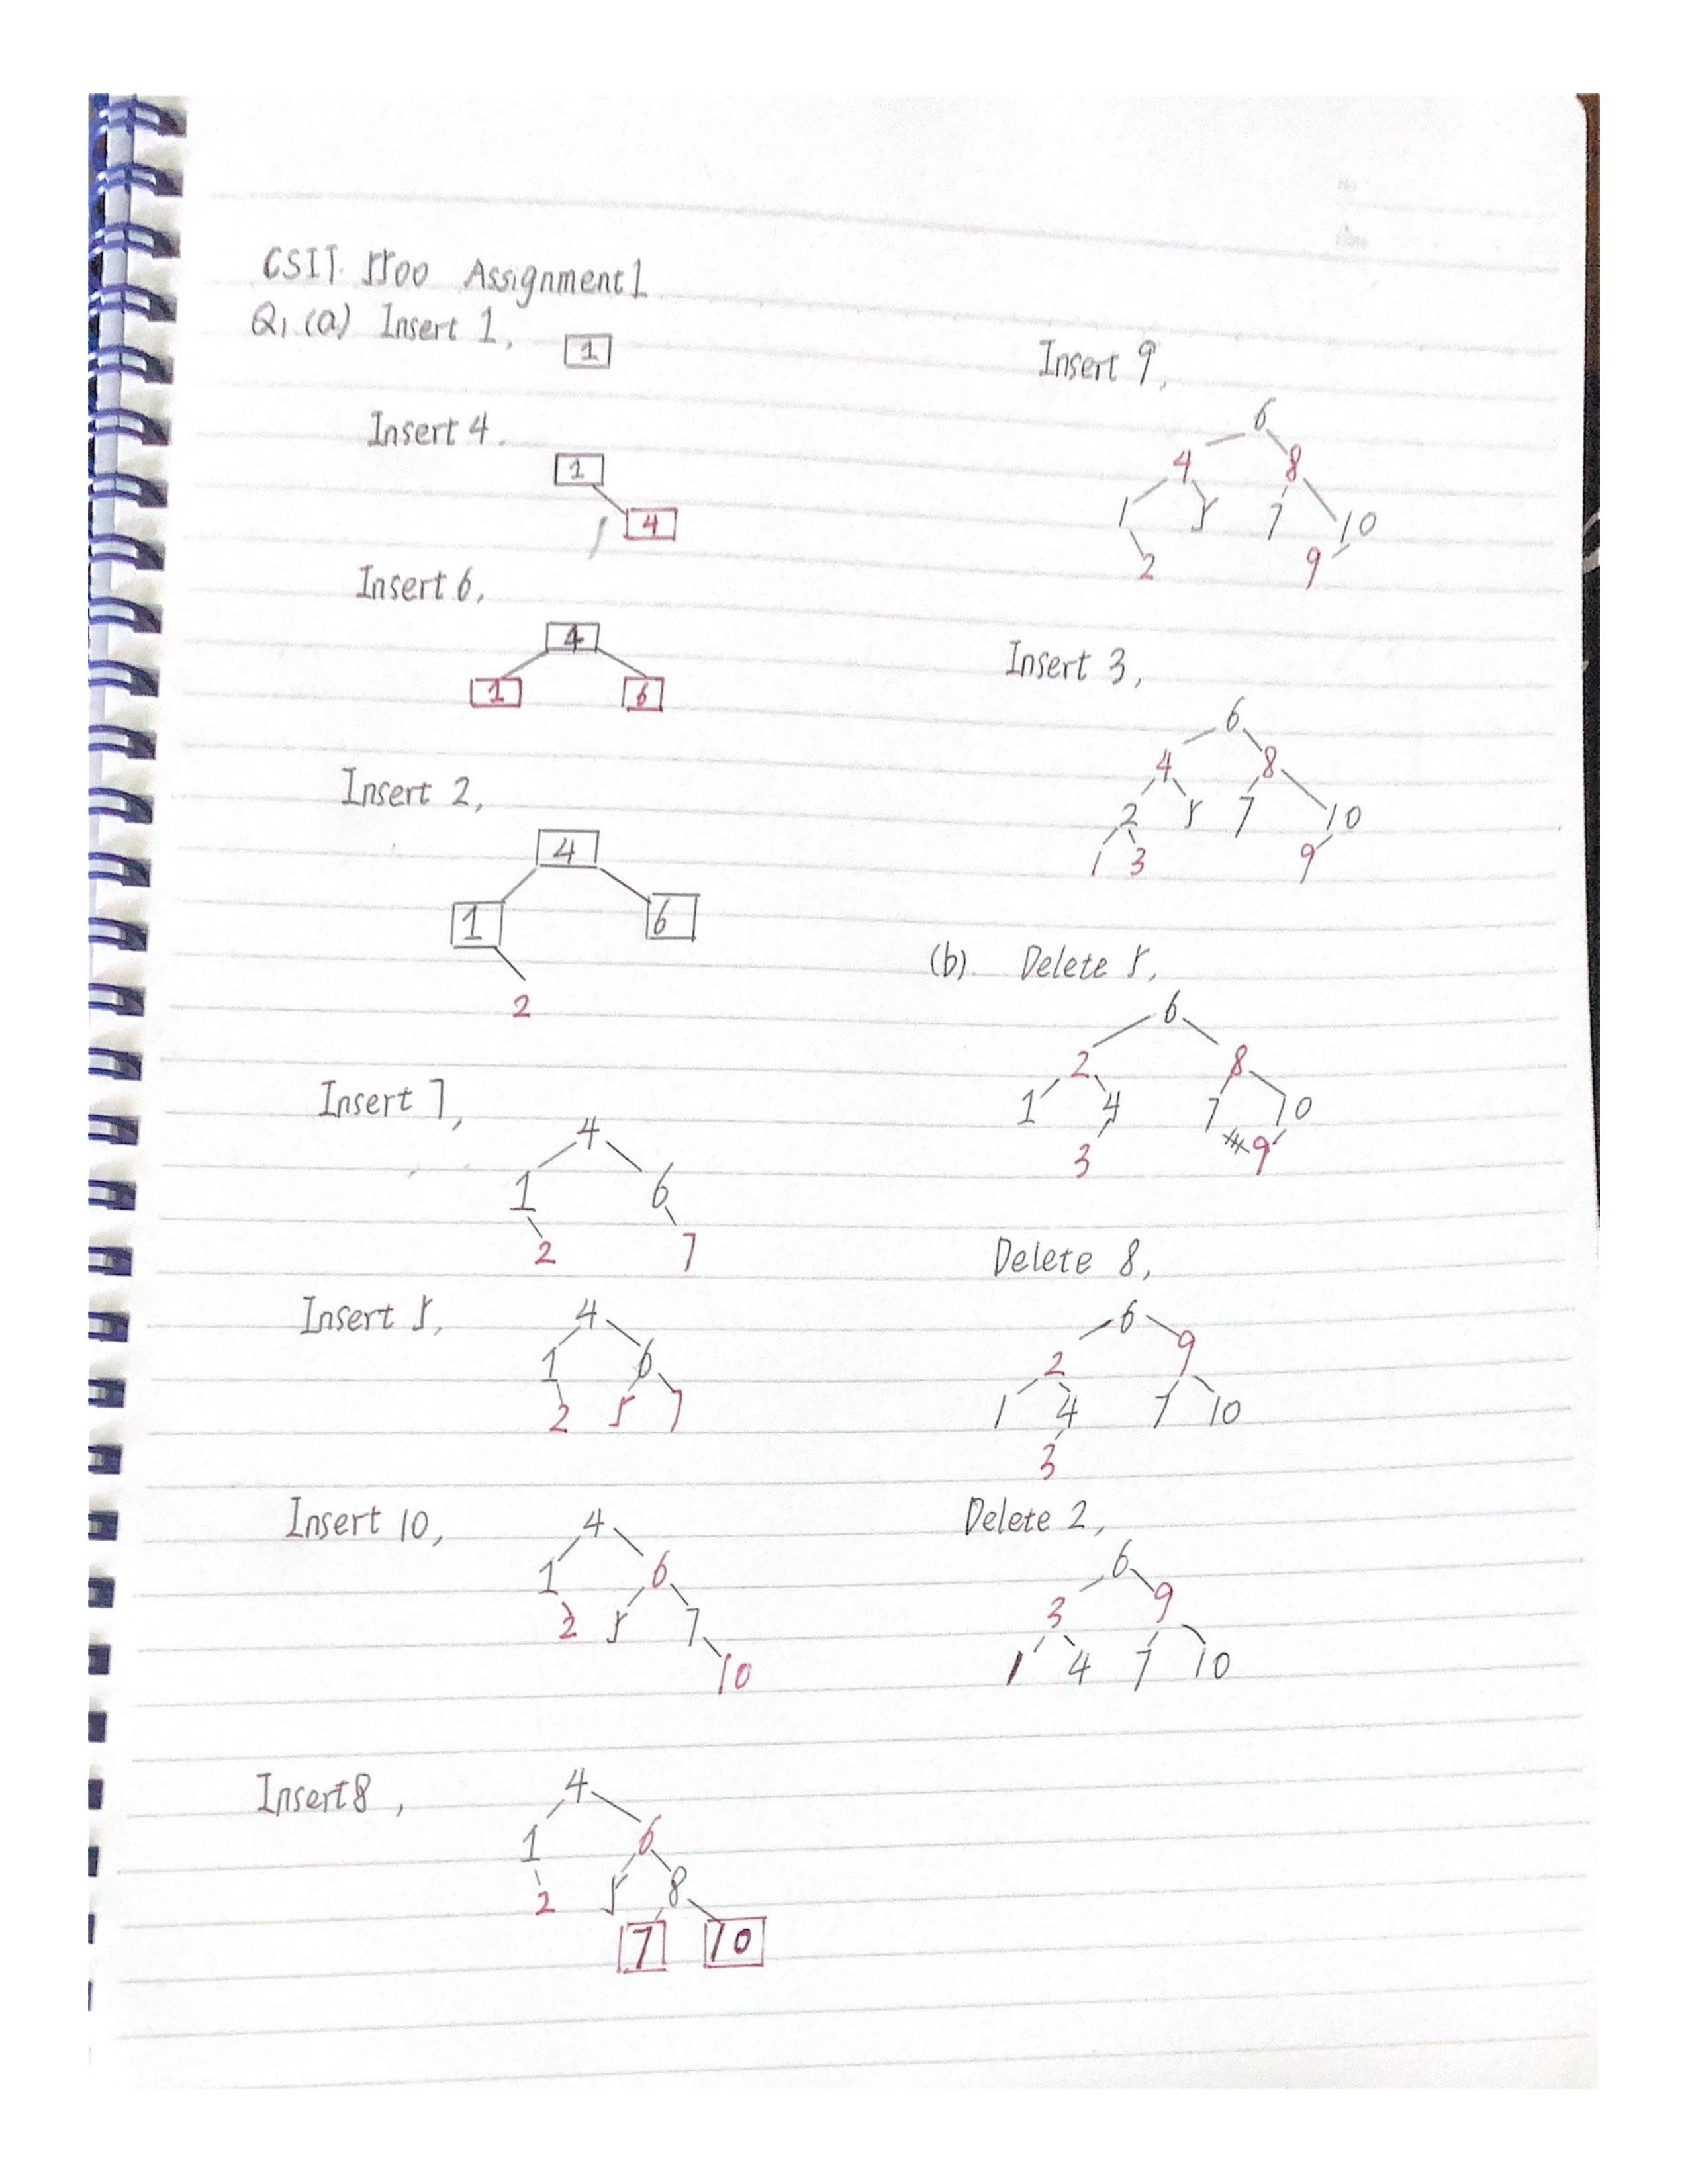 CSIT 5500 Assignment 1
Q1. (a) Insert 1,
1
Insert 4.
1
4
Insert 6,
4
1 6
Insert 2,
4
1 6
2
Insert 7,
4
1 6
2 7
Insert 5,
4
1 6
2 5 7
Insert 10,
4
1 6
2 5 7
10
Insert 8,
4
1 6
2 5 8
7 10
Insert 9,
6
4 8
1 5 7 10
2 9
Insert 3,
6
4 8
2 5 7 10
1 3 9
(b). Delete 5,
6
2 8
1 4 7 10
3 9
Delete 8,
6
2 9
1 4 7 10
3
Delete 2,
6
3 9
1 4 7 10